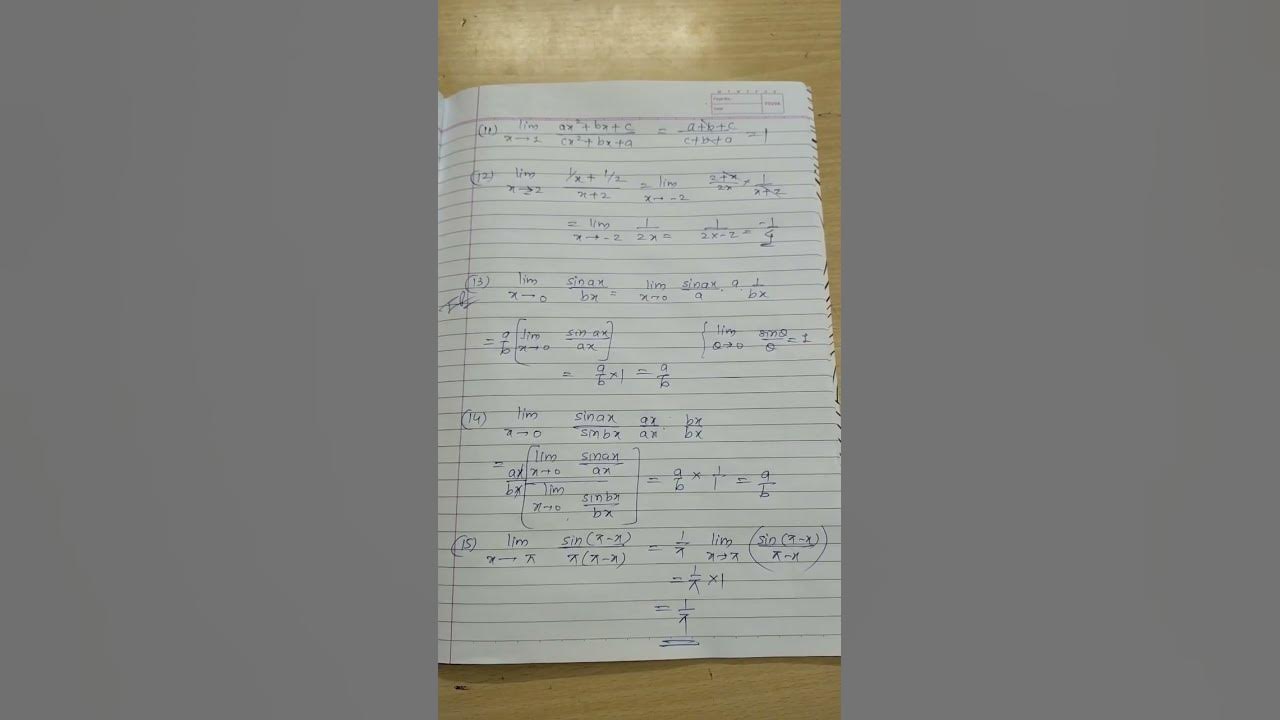 (11) lim x→1 (ax²+bx+c)/(cx²+bx+a) = (a+b+c)/(c+b+a) = 1
(12) lim x→2 (1/x + 1/2)/(x+2) = lim x→-2 (2+x)/2x × 1/(x+2)
= lim x→-2 1/2x = 1/(2×-2) = -1/4
(13) lim x→0 sinax/bx = lim x→0 sinax/a · a · 1/bx
= a/b [lim x→0 sin ax/ax] { lim θ→0 sinθ/θ = 1
= a/b × 1 = a/b
(14) lim x→0 sinax/sinbx ax/ax · bx/bx
= ax/bx [lim x→0 sinax/ax / lim x→0 sinbx/bx] = a/b × 1/1 = a/b
(15) lim x→π sin(π-x)/π(π-x) = 1/π lim x→π (sin(π-x)/π-x)
= 1/π × 1
= 1/π